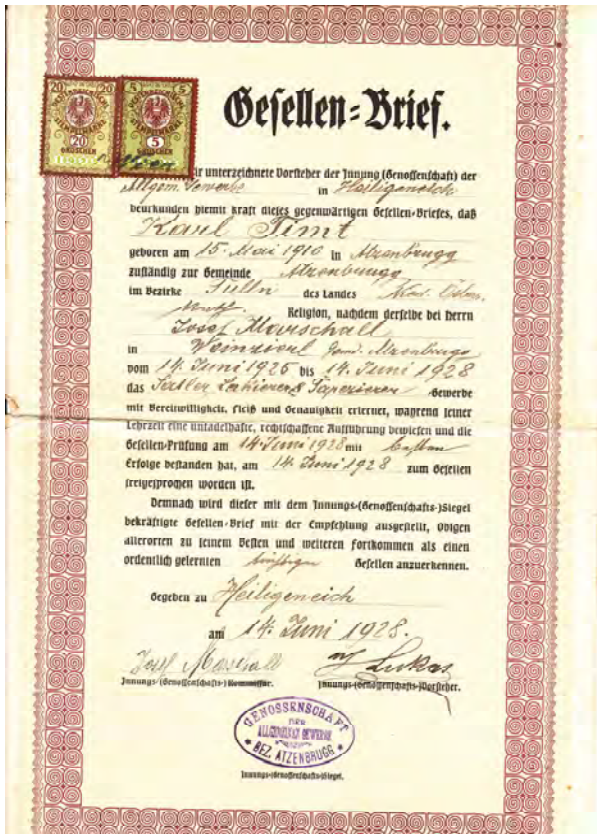 20 20
20
GROSCHEN
5 5
STEMPELMARKE
5
GROSCHEN
Gesellen=Brief.
ir unterzeichnete Vorsteher der Innung (Genossenschaft) der
Allgem. Gewerbe in Heiligeneich
beurkunden hiemit kraft dieses gegenwärtigen Gesellen-Briefes, daß
Karl Timt
geboren am 15. Mai 1910 in Atzenbrugg
zuständig zur Gemeinde Atzenbrugg
im Bezirke Tulln des Landes
Religion, nachdem derselbe bei Herrn
Josef Marschall
in Weinzierl Gem. Atzenbrugg
vom 14. Juni 1925 bis 14. Juni 1928
das Sattler Lakierer & Tapezierer Gewerbe
mit Bereitwilligkeit, Fleiß und Genauigkeit erlernet, während seiner
Lehrzeit eine untadelhafte, rechtschaffene Aufführung bewiesen und die
Gesellen-Prüfung am 14. Juni 1928 mit bestem
Erfolge bestanden hat, am 14. Juni 1928 zum Gesellen
freigesprochen worden ist.
Demnach wird dieser mit dem Innungs-(Genossenschafts-)Siegel
bekräftigte Gesellen-Brief mit der Empfehlung ausgestellt, obigen
allerorten zu seinem Besten und weiteren Fortkommen als einen
ordentlich gelernten Gesellen anzuerkennen.
Gegeben zu Heiligeneich
am 14. Juni 1928.
Josef Marschall Lukas
Innungs-(Genossenschafts-)Kommissär. Innungs-(Genossenschafts-)Vorsteher.
GENOSSENSCHAFT
DER
ALLGEMEINEN GEWERBE
BEZ. ATZENBRUGG
Innungs-(Genossenschafts-)Siegel.